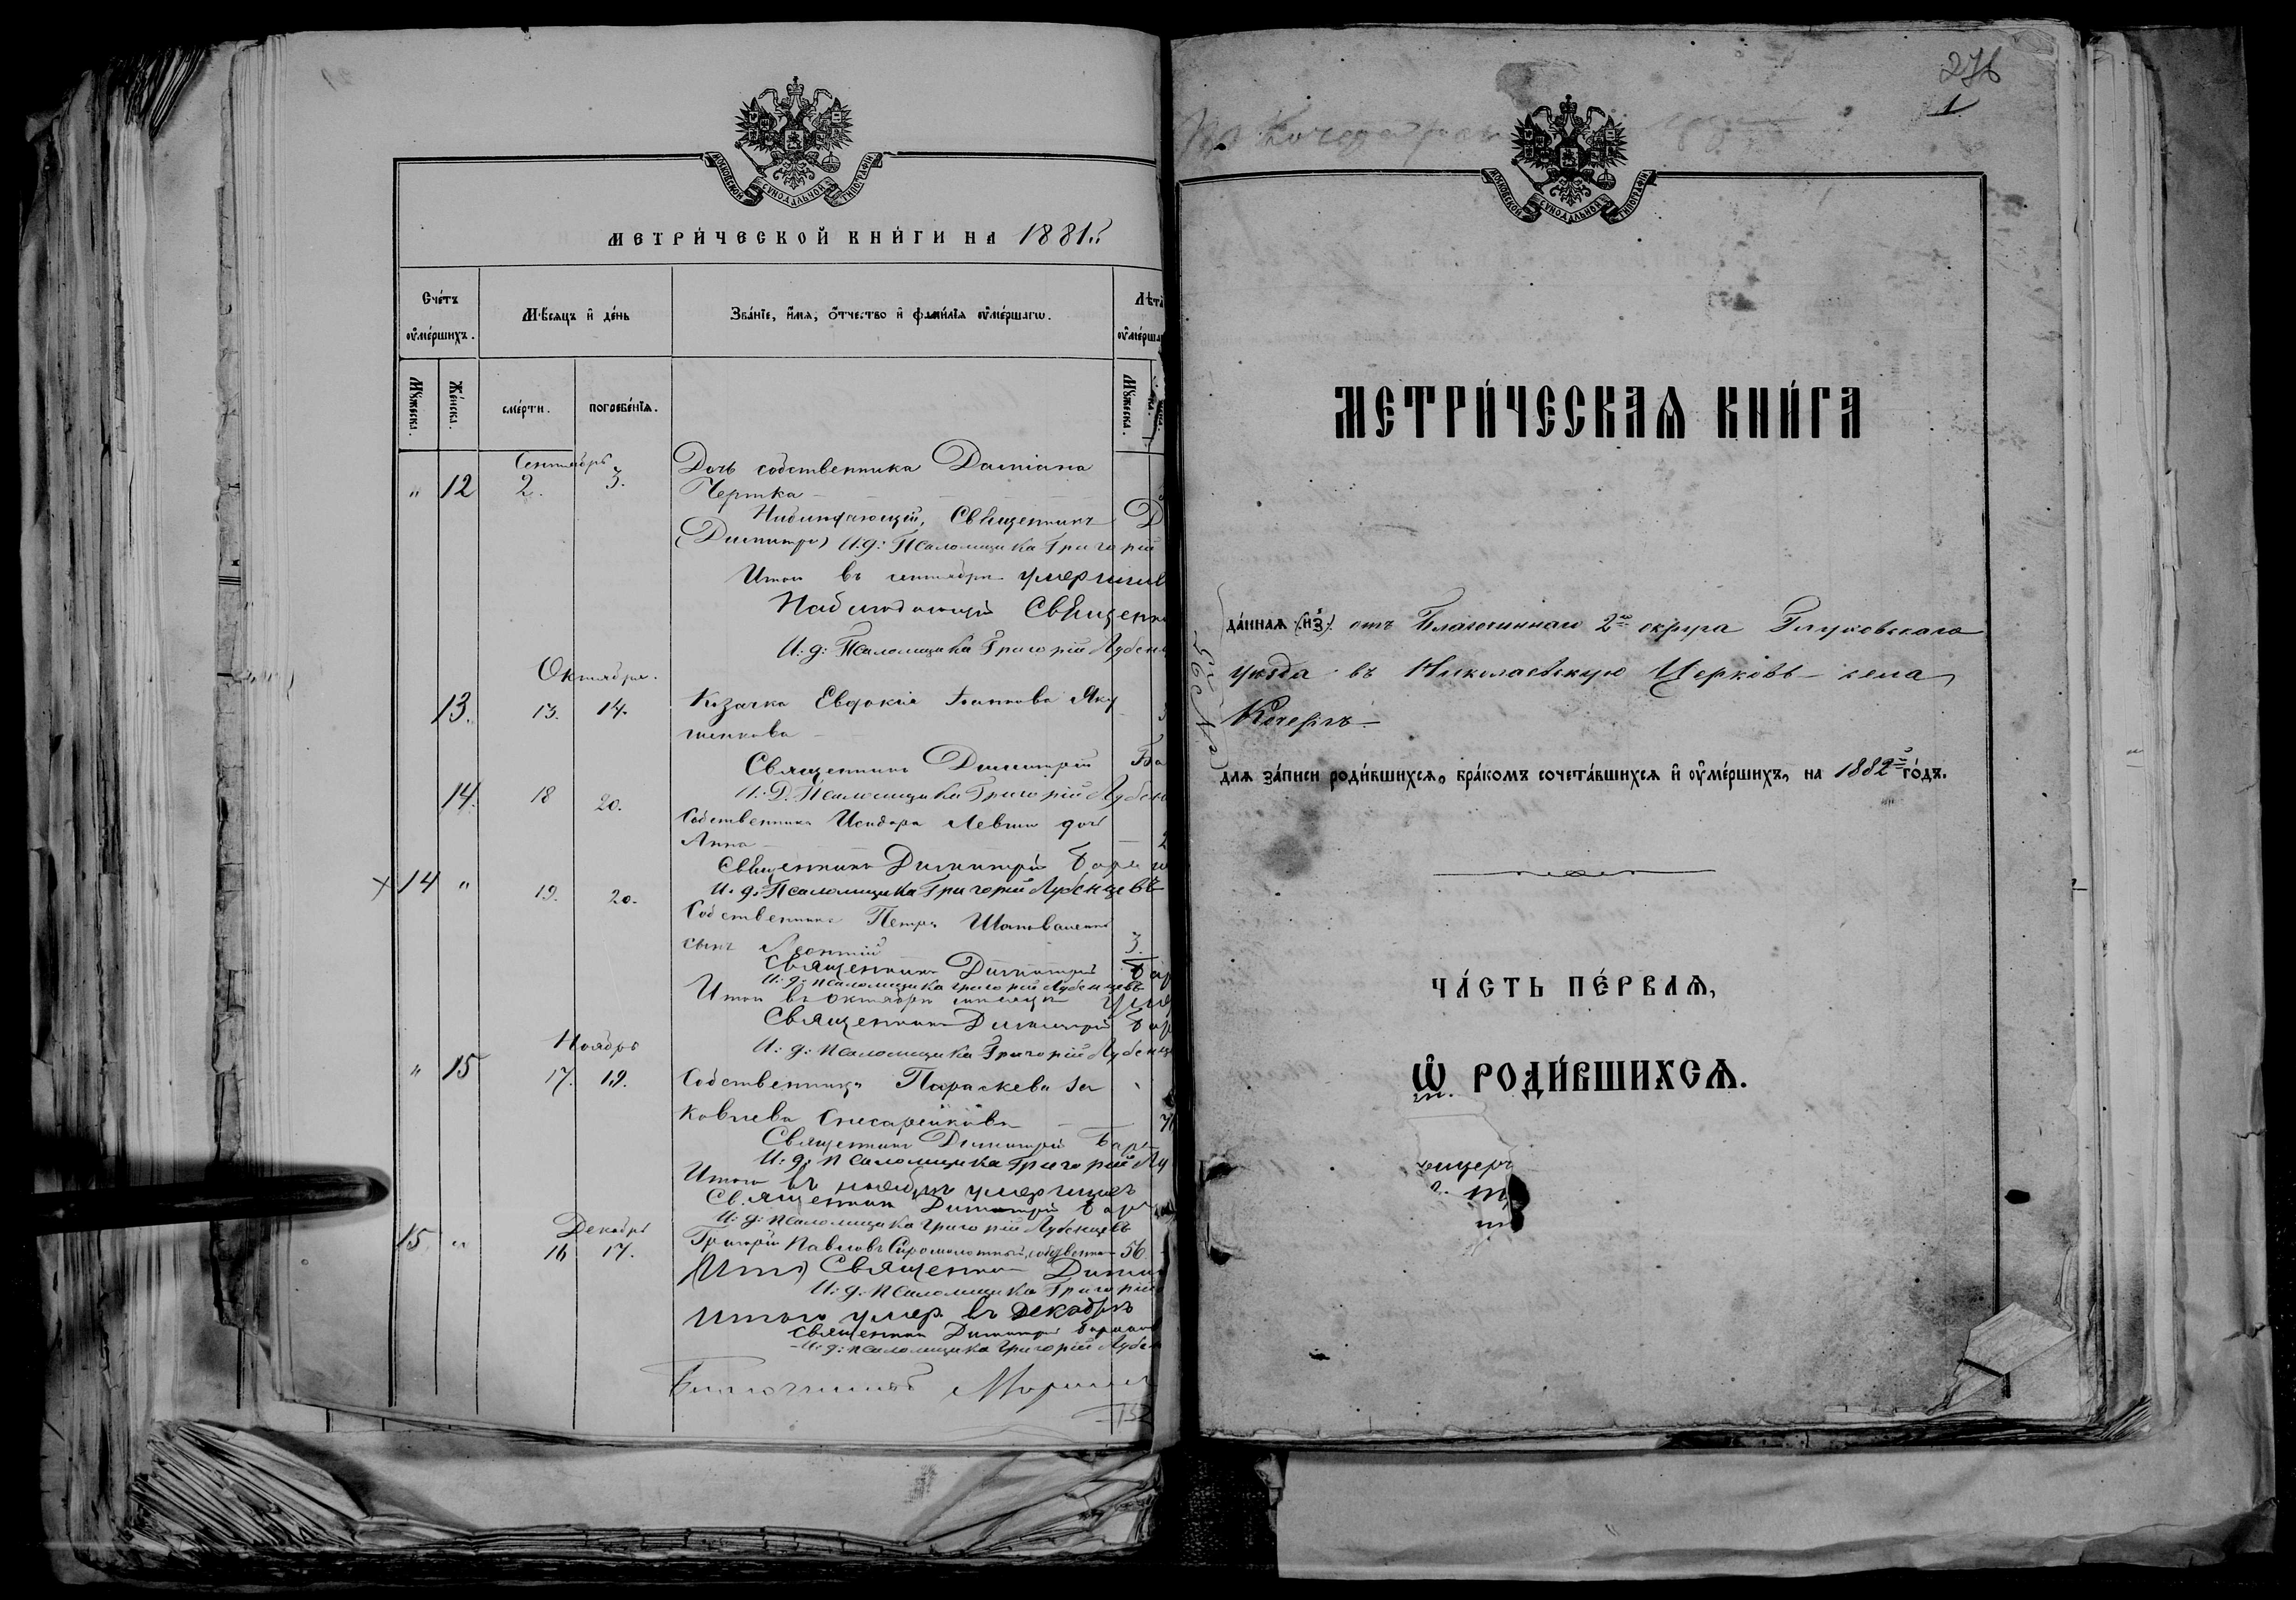 МОСКОВСКОЙ СѴНОДАЛЬНОЙ ТИПОГРАФІИ
МЕТРИ́ЧЕСКОЙ КНИ́ГИ НА 1881.
Сче́тъ ᲂу҆ме́ршихъ.
Мѣ́сяцъ и҆ де́нь
Зва́нїе, и҆́мѧ, ѻ҆́тчество и҆ фами́лїѧ ᲂу҆ме́ршагѡ.
Лѣта
ᲂу҆ме́рша
Мꙋ́жеска.
Же́нска.
сме́рти.
погребе́нїѧ.
Мꙋ́жеска.
Сентябрь
" 12 2. 3. Дочь собственника Даміана
Чертка
Священникъ
(Димитрі) И.д: Псаломщика Григорій
Итого въ сентябрѣ умерших
Наблюдающій Священн
И: д: Псаломщика Григорій Лубенц
Октябрь.
13. 13. 14. Козачка Евдокія Яку
шенкова
Священникъ Димитрій Ба
14. 18 20. И: Д. Псаломщика Григорій Лубенц
Собственника Исидора Левши дочь
Анна
Священникъ Димитрій
+ 14 " 19. 20. И. д. Псаломщика Григорій Лубенцевъ
Собственника Петра Шаповаленко
сынъ Леонтій 3.
Священникъ Димитрій Бар
И: д: псаломщика Григорій Лубенцевъ
Итого въ октябрѣ мѣсяцѣ умер
Священникъ Димитрій Бар
Ноябрь
И: д: псаломщика Григорій Лубенце
" 15 17. 19. Собственница Параскева Іа
ковлева
Священникъ Димитрій Бар
И: д: псаломщика Григорій Лу
Итого въ ноябрѣ умершихъ
Священник Димитрій Бар
И: д: псаломщика Григорій Лубенцевъ
Декабрь
15 " 16 17. Григорій Павловъ Сыромолотный, собственник 56
Священник Димит
И. д. псаломщика Григорій
Итого умер. въ Декабрѣ
Священник Димитрій
И: д: псаломщика Григорій Лубен
Благочинный
152
276
1
МОСКОВСКОЙ СѴНОДАЛЬНОЙ ТИПОГРАФІИ
МЕТРИ́ЧЕСКАѦ КНИ́ГА
да́ннаѧ (и҆з̾) отъ Благочиннаго 2го округа Глуховскаго
уѣзда въ Николаевскую Церковь села
Кочергъ
длѧ за́писи роди́вшихсѧ, бра́комъ сочета́вшихсѧ и҆ ᲂу҆ме́ршихъ, на 1882й го́дъ.
ЧА́СТЬ ПЕ́РВАѦ,
Ѽ РОДИ́ВШИХСѦ.